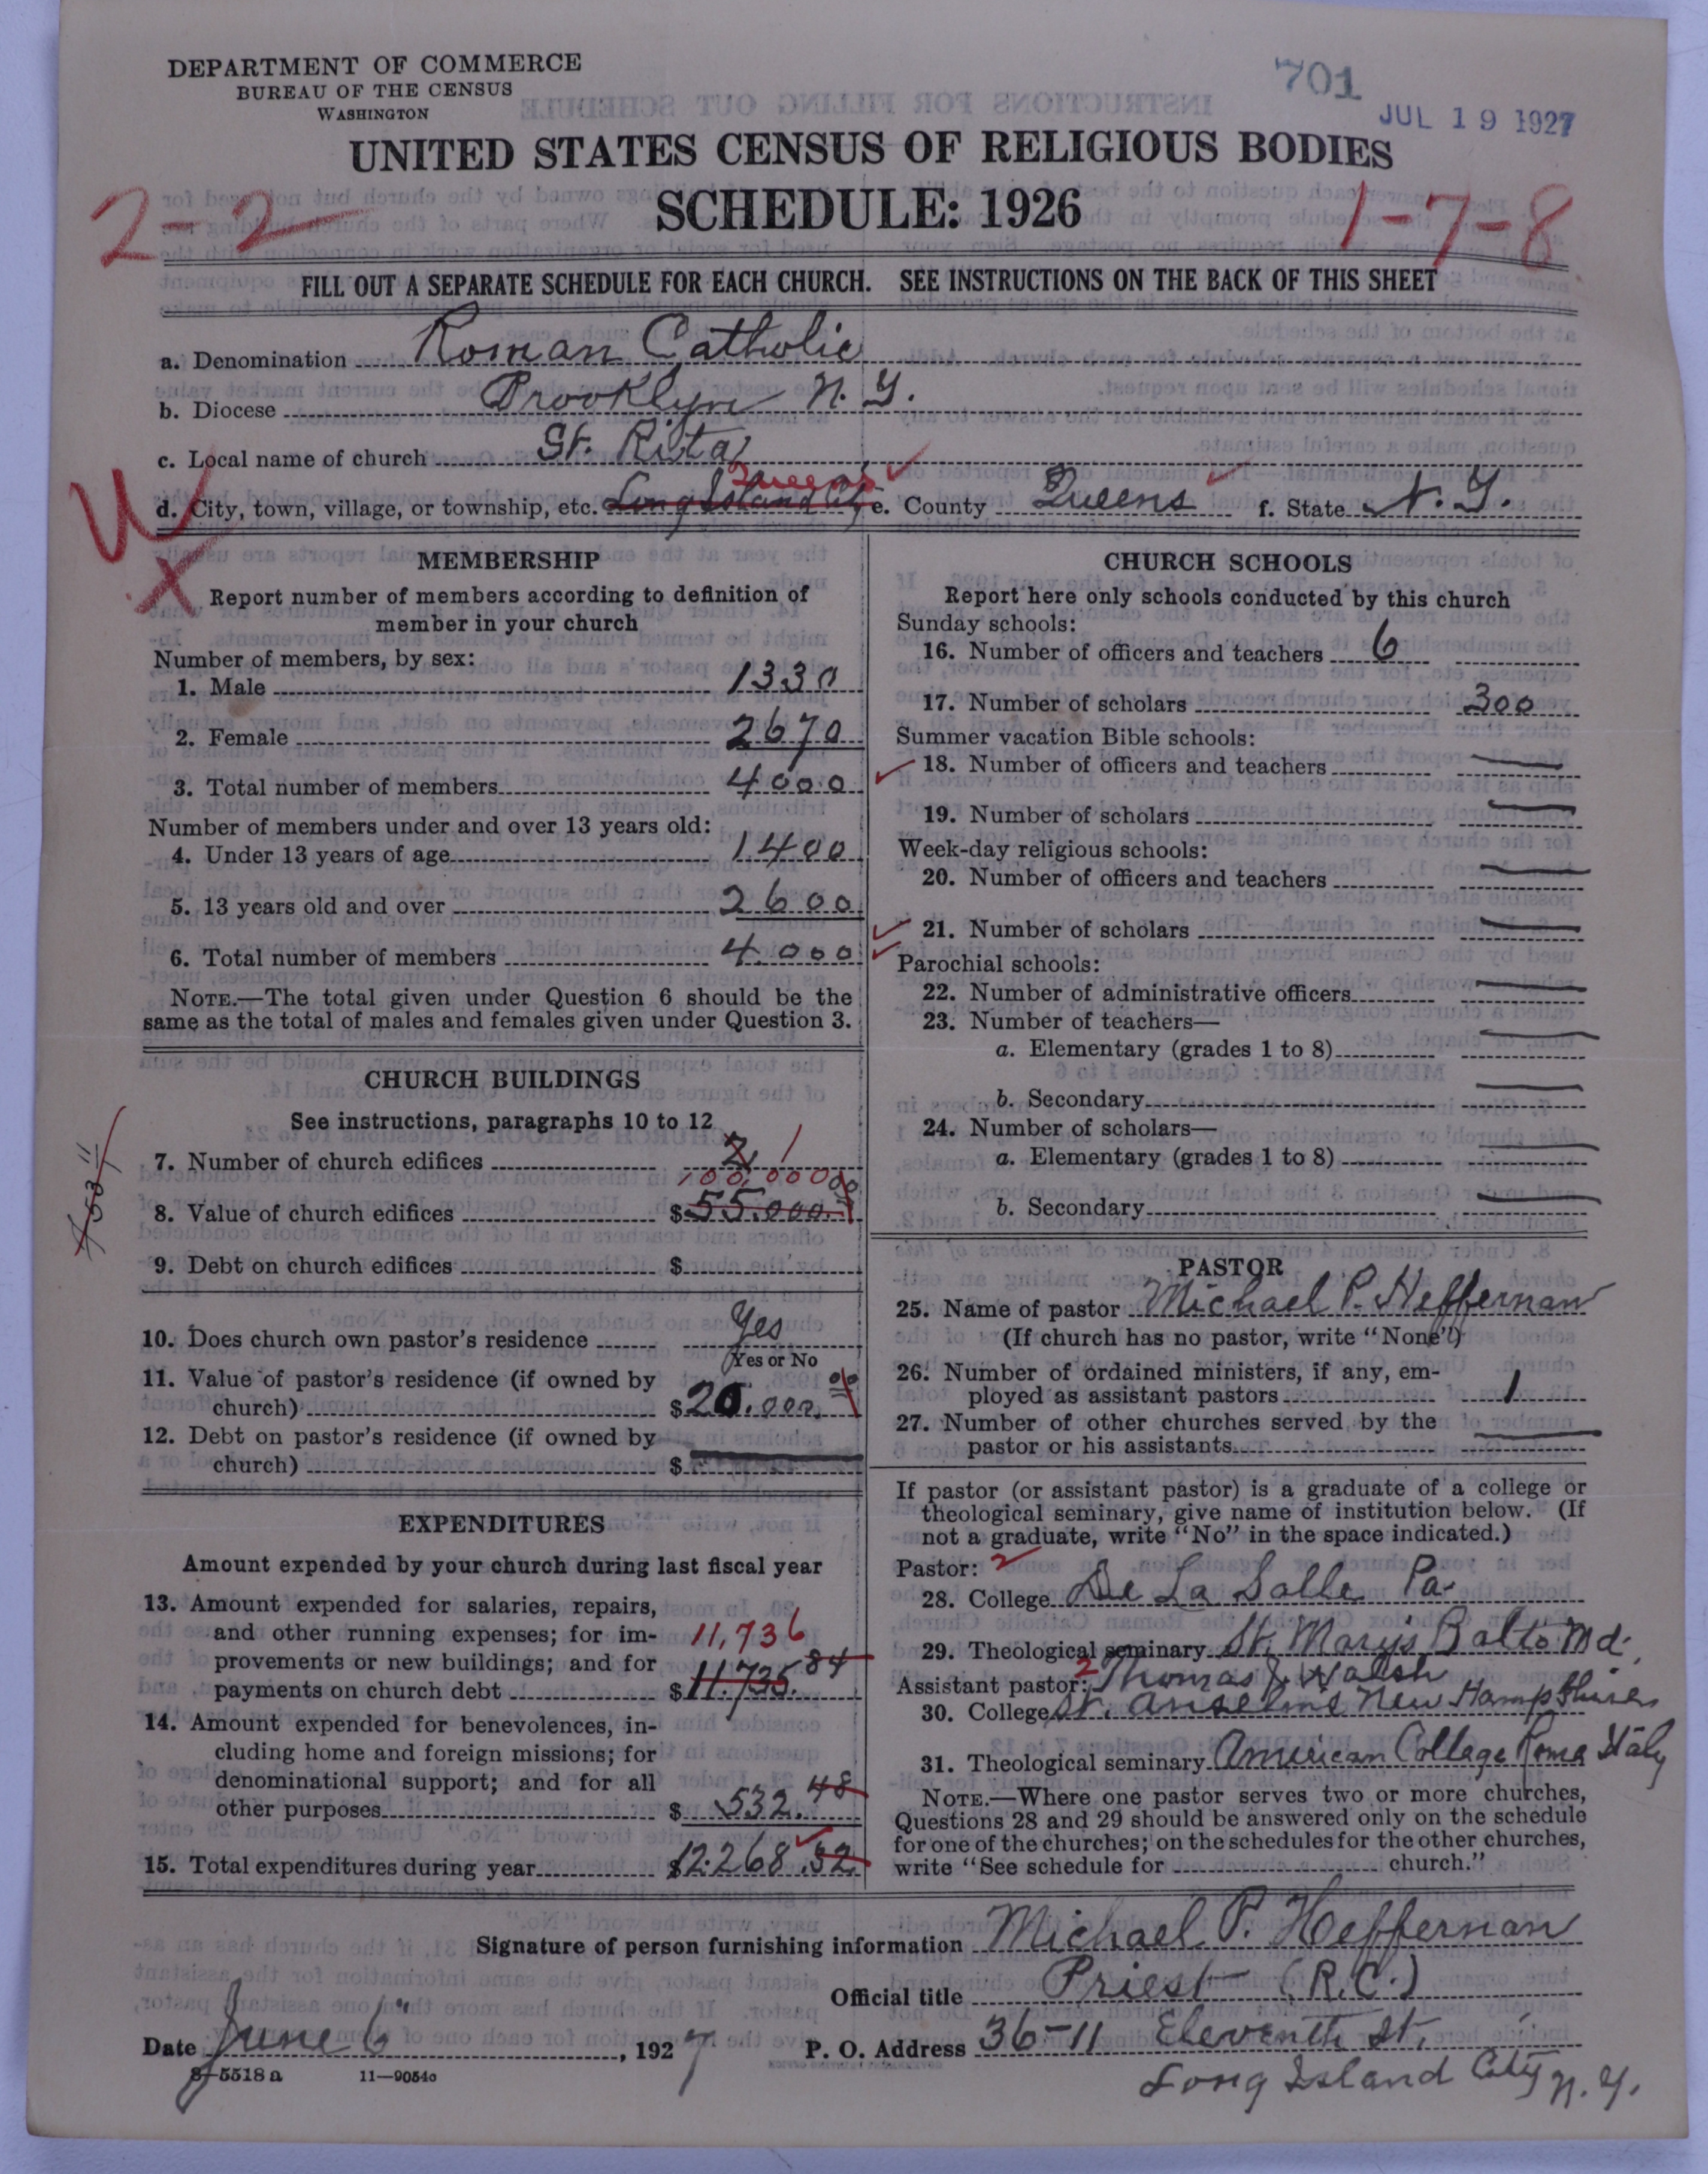 DEPARTMENT OF COMMERCE
BUREAU OF THE CENSUS
WASHINGTON
701
JUL 19 1927
UNITED STATES CENSUS OF RELIGIOUS BODIES
SCHEDULE: 1926
2-2-
1-7-8
FILL OUT A SEPARATE SCHEDULE FOR EACH CHURCH. SEE INSTRUCTIONS ON THE BACK OF THIS SHEET
a. Denomination Roman Catholic
b. Diocese Brooklyn N.Y.
c. Local name of church St. Rita
Queens
d. City, town, village, or township, etc. Long Island City e. County Queens f. State N.Y.
W
X
MEMBERSHIP
Report number of members according to definition of
member in your church
Number of members, by sex:
1. Male 1330
2. Female 2670
3. Total number of members 4000
Number of members under and over 13 years old:
4. Under 13 years of age 1400
5. 13 years old and over 2600
6. Total number of members 4000
NOTE.—The total given under Question 6 should be the
same as the total of males and females given under Question 3.
CHURCH BUILDINGS
See instructions, paragraphs 10 to 12
7. Number of church edifices 2 1
100,000
8. Value of church edifices $55.000.00
9. Debt on church edifices $
10. Does church own pastor's residence Yes
Yes or No
11. Value of pastor's residence (if owned by
church) $20.000.00
12. Debt on pastor's residence (if owned by
church) $
EXPENDITURES
Amount expended by your church during last fiscal year
13. Amount expended for salaries, repairs,
and other running expenses; for im- 11,736
provements or new buildings; and for
payments on church debt $11.735.84
14. Amount expended for benevolences, in-
cluding home and foreign missions; for
denominational support; and for all
other purposes $532.48
15. Total expenditures during year $12.268.32
CHURCH SCHOOLS
Report here only schools conducted by this church
Sunday schools:
16. Number of officers and teachers 6
17. Number of scholars 300
Summer vacation Bible schools:
18. Number of officers and teachers
19. Number of scholars
Week-day religious schools:
20. Number of officers and teachers
21. Number of scholars
Parochial schools:
22. Number of administrative officers
23. Number of teachers—
a. Elementary (grades 1 to 8)
b. Secondary
24. Number of scholars—
a. Elementary (grades 1 to 8)
b. Secondary
PASTOR
25. Name of pastor Michael P. Heffernan
(If church has no pastor, write "None")
26. Number of ordained ministers, if any, em-
ployed as assistant pastors 1
27. Number of other churches served by the
pastor or his assistants
If pastor (or assistant pastor) is a graduate of a college or
theological seminary, give name of institution below. (If
not a graduate, write "No" in the space indicated.)
Pastor: 2
28. College De La Salle Pa.
29. Theological seminary St. Mary's Balto. Md.
Assistant pastor: 2 Thomas J. Walsh
30. College St. Anselms New Hampshire
31. Theological seminary American College Rome Italy
NOTE.—Where one pastor serves two or more churches,
Questions 28 and 29 should be answered only on the schedule
for one of the churches; on the schedules for the other churches,
write "See schedule for church."
Signature of person furnishing information Michael P. Heffernan
Official title Priest (R.C.)
Date June 6, 1927
P. O. Address 36-11 Eleventh St.
Long Island City N.Y.
8-5518 a 11-9054c